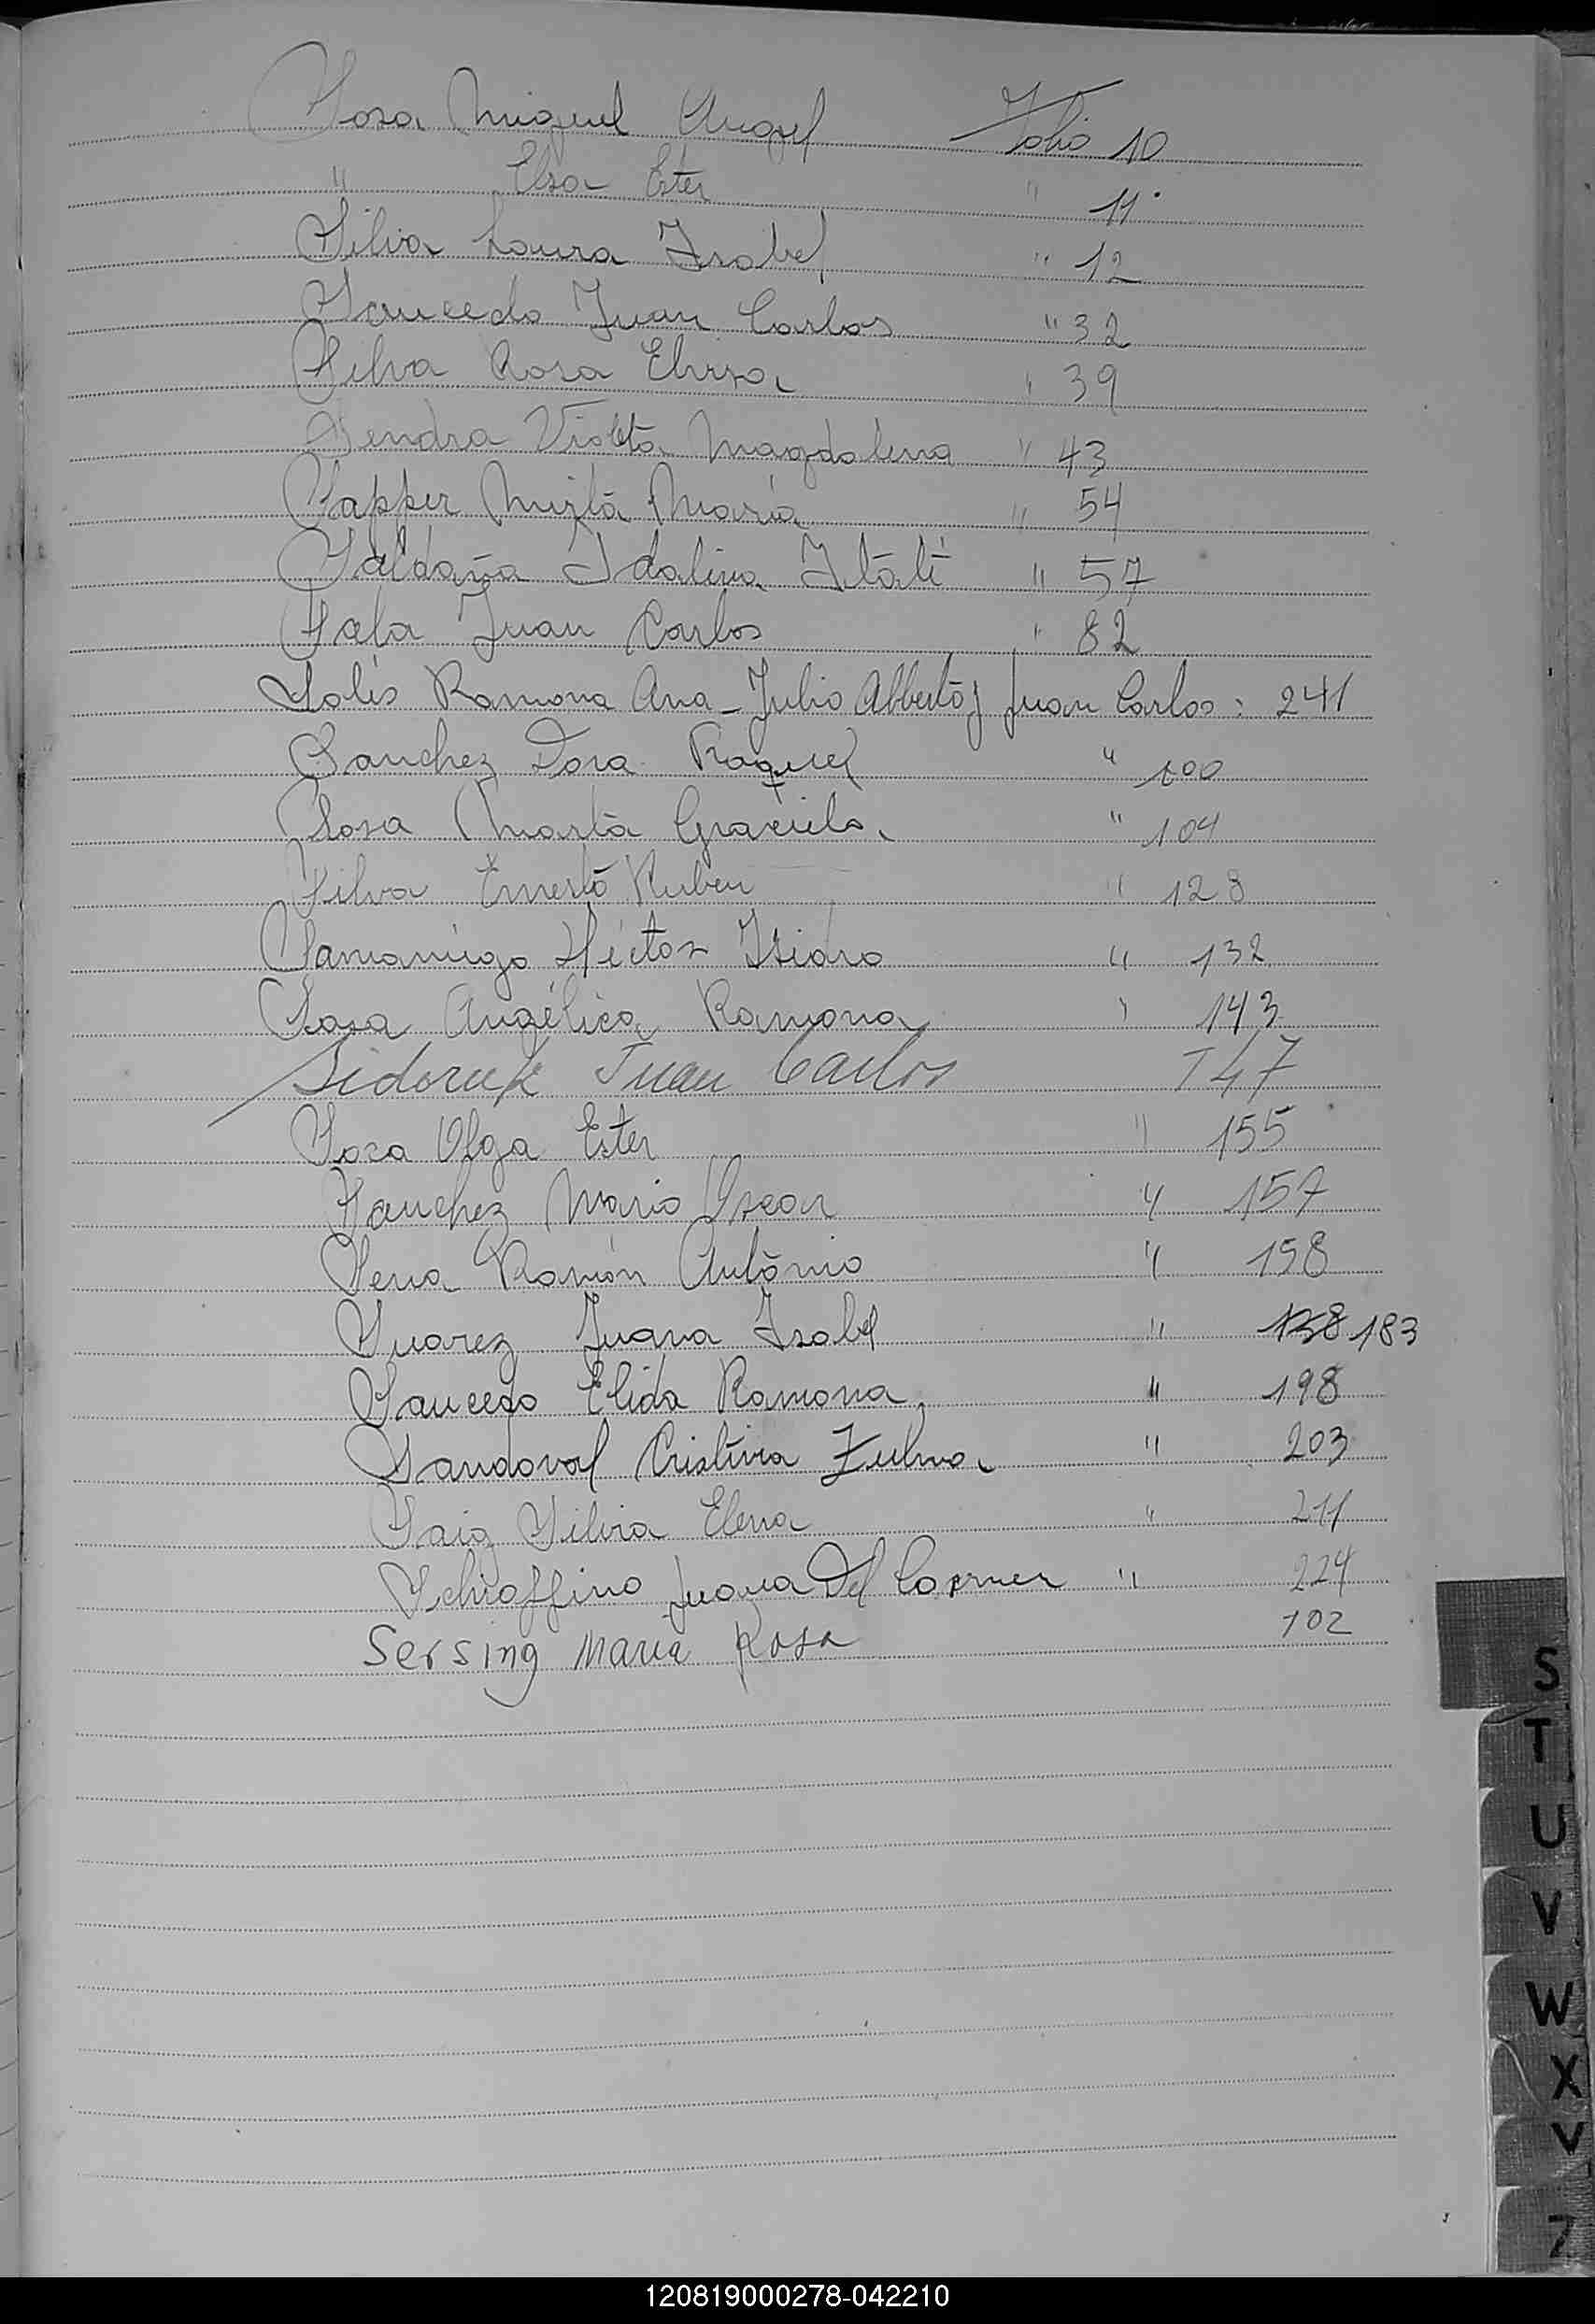 Sosa Miguel Angel Folio 10
" Elsa Ester " 11
Silva Laura Isabel " 12
Saucedo Juan Carlos " 32
Silva Rosa Elvisa " 39
Sendra Violeta Magdalena " 43
Sapper Mirta Maria " 54
Saldaña Idalina Itatí " 57
Sala Juan Carlos " 82
Solis Ramona Ana - Julio Alberto y Juan Carlos : 241
Sanchez Dora Raquel " 100
Sosa Marta Graciela " 104
Silva Ernesto Ruben " 128
Samaniego Héctor Isidro " 132
Sosa Angélica Ramona " 143
Sidoruk Juan Carlos 147
Sosa Olga Ester " 155
Sanchez Mario Oscar " 157
Sena Ramón Antonio " 158
Suarez Juana Isabel " 138 183
Saucedo Elida Ramona " 198
Sandoval Cristina Zulma " 203
Saiz Silvia Elena " 211
Schiaffino Juana Del Carmen " 224
Sersing Maria Rosa 102
S
T
U
V
W
X
Y
Z
120819000278-042210